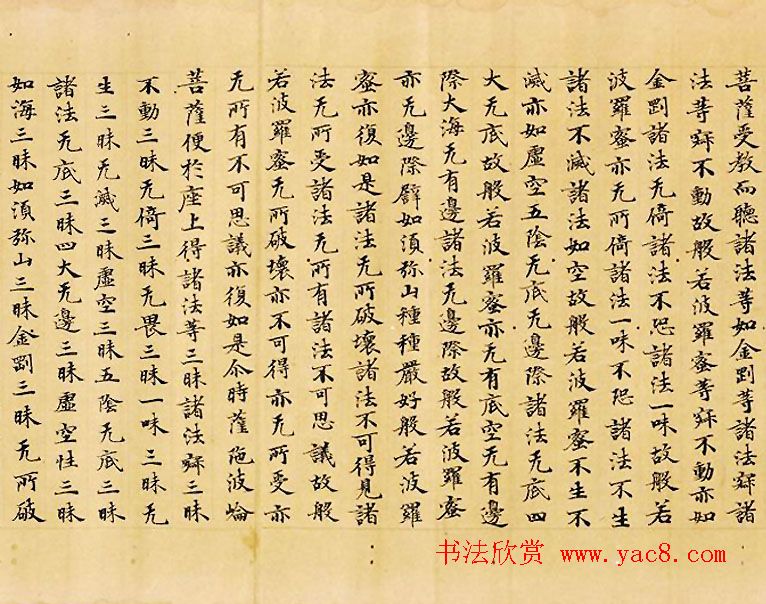 菩薩受教而聽諸法等如金剛等諸法寂諸
法等寂不動故般若波羅蜜等寂不動亦如
金剛諸法无倚諸法不恐諸法一味故般若
波羅蜜亦无所倚諸法一味不恐諸法不生
諸法不滅諸法如空故般若波羅蜜不生不
滅亦如虛空五陰无底无邊際諸法无底四
大无底故般若波羅蜜亦无有底空无有邊
際大海无有邊諸法无邊際故般若波羅蜜
亦无邊際譬如須弥山種種嚴好般若波羅
蜜亦復如是諸法无所破壞諸法不可得見諸
法无所受諸法无所有諸法不可思議故般
若波羅蜜无所破壞亦不可得亦无所受亦
无所有不可思議亦復如是尒時薩陁波崘
菩薩便於座上得諸法等三昧諸法寂三昧
不動三昧无倚三昧无畏三昧一味三昧无
生三昧无滅三昧虛空三昧五陰无底三昧
諸法无底三昧四大无邊三昧虛空性三昧
如海三昧如須弥山三昧金剛三昧无所破
书法欣赏 www.yac8.com